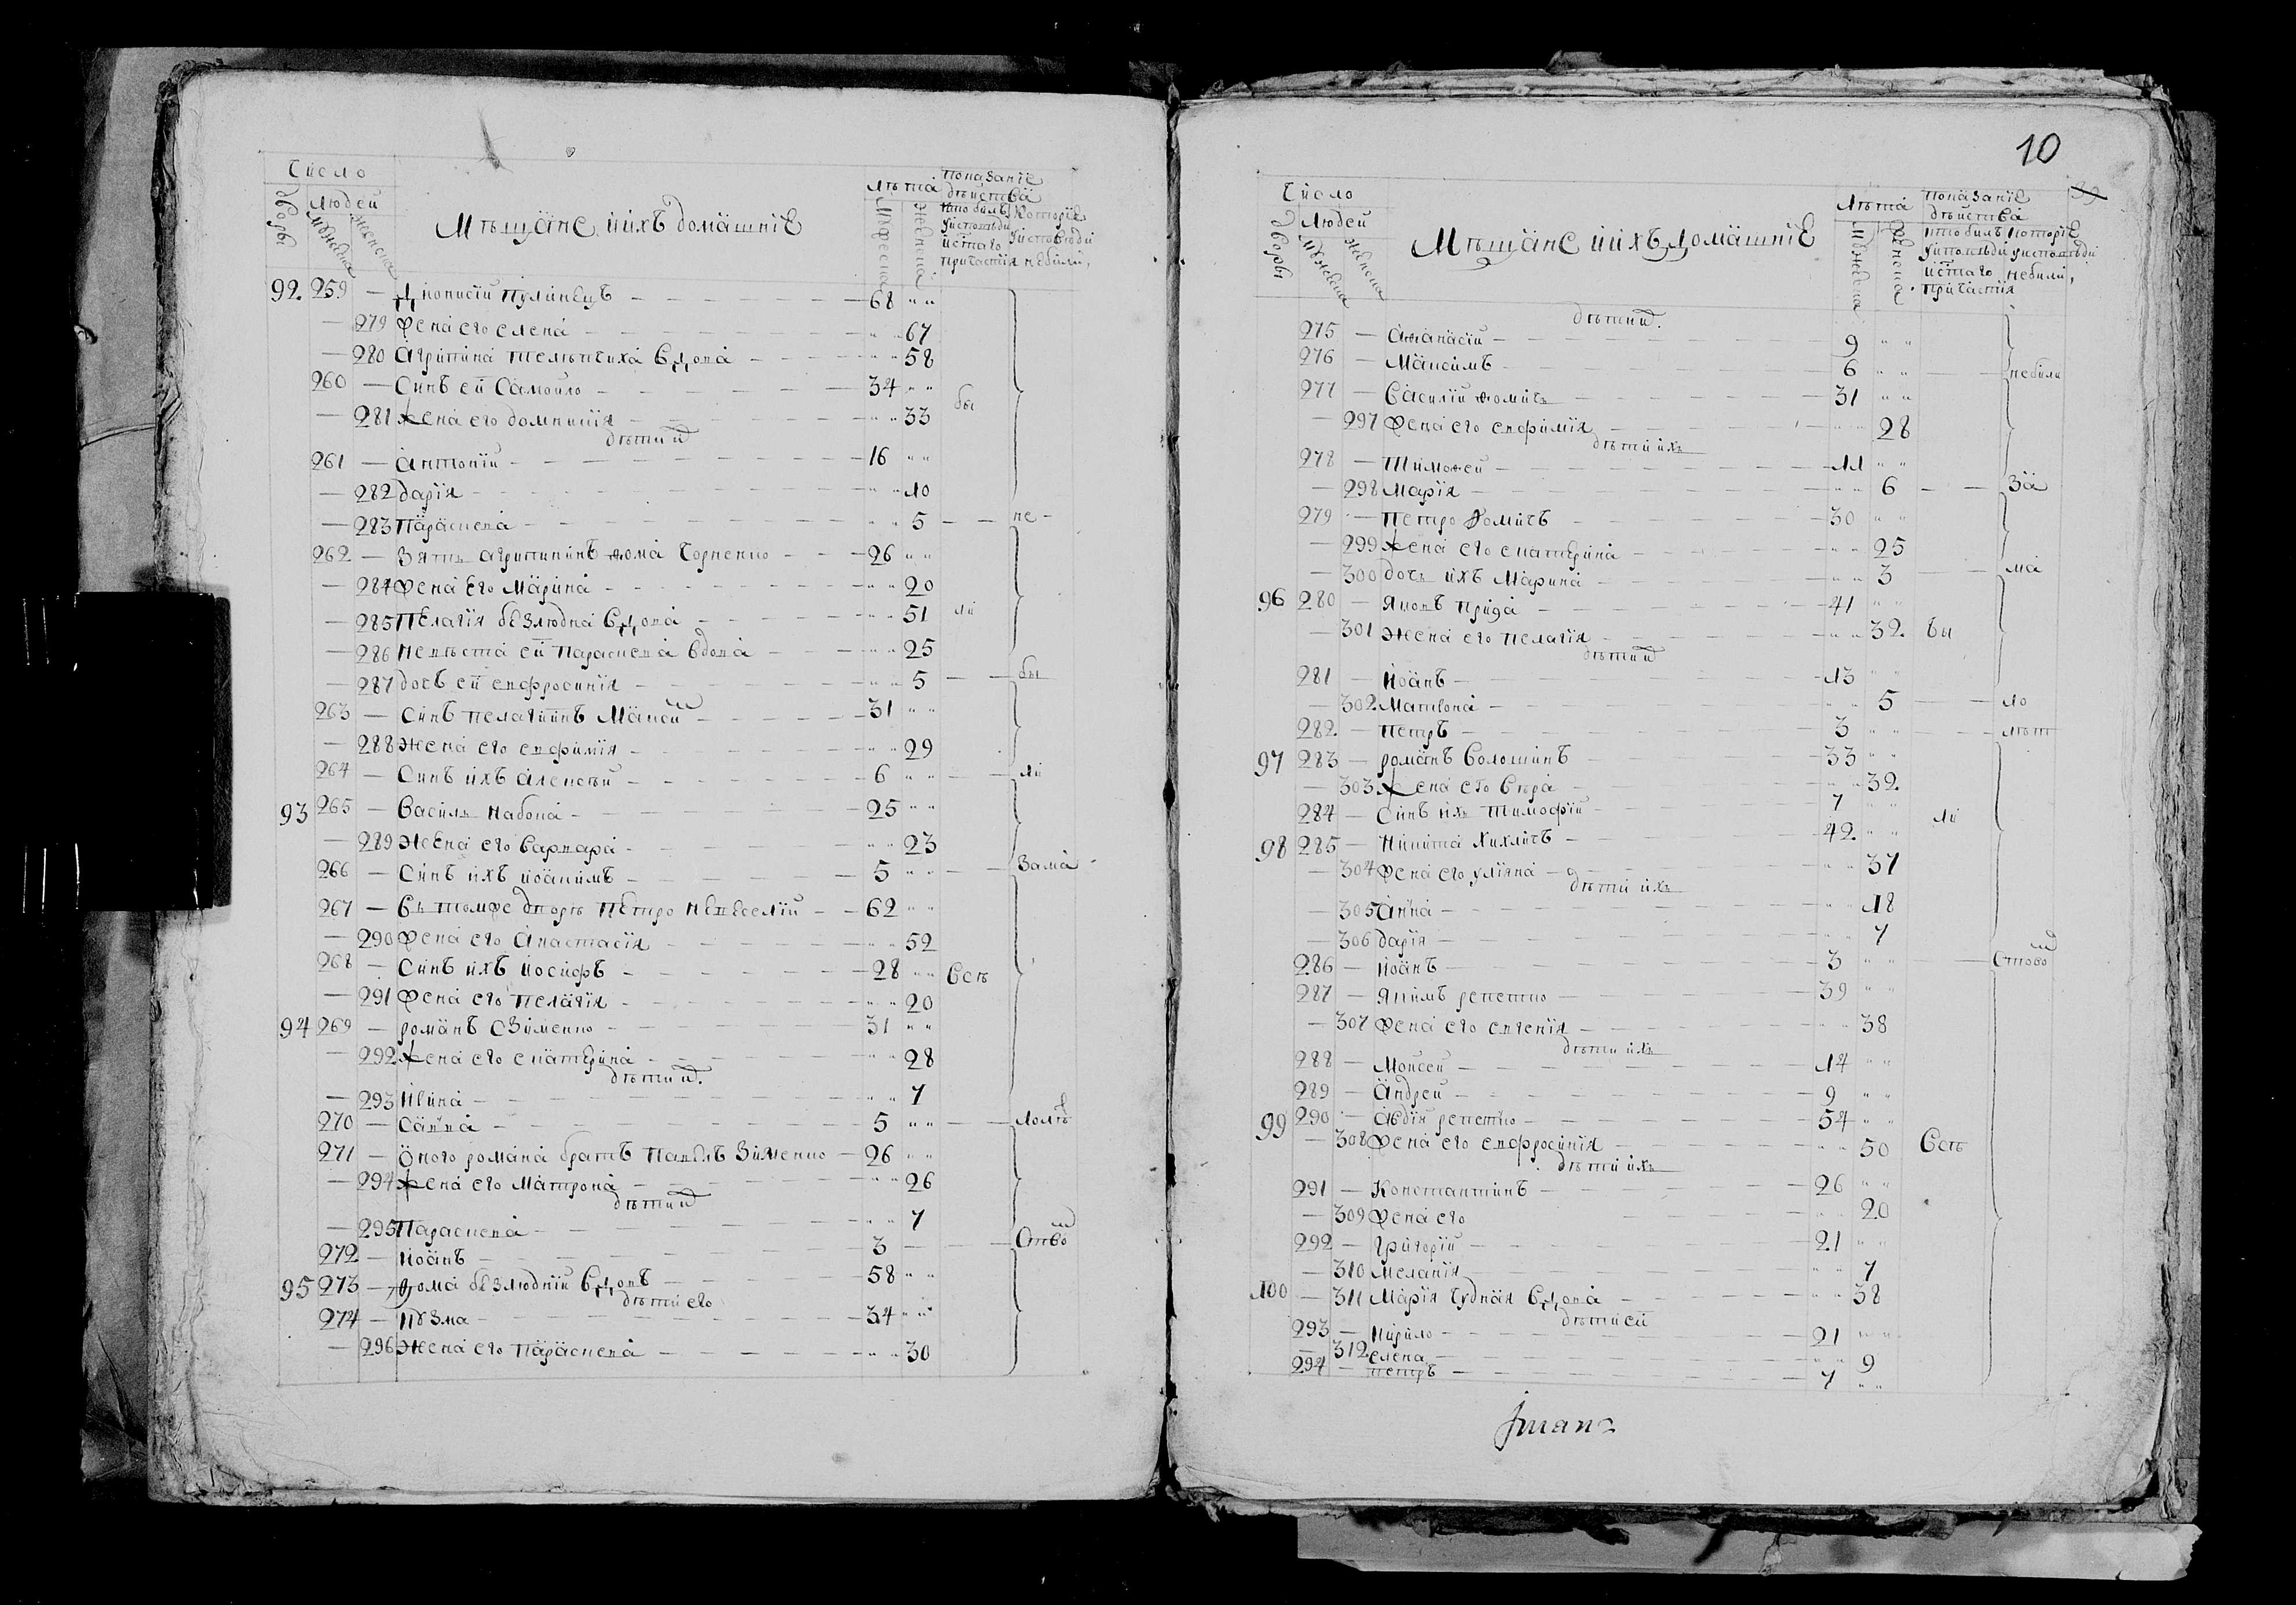 Число
Людей
дворы
мужеска
женска
Мѣщане и ихъ домашніе
Лѣта
мужеска
женска
показаніе дѣйства
кто билъ у исповѣди и с:таго причастія
которіе у исповѣди небили,
92. 259 — Діонисій Пулинецъ — 68
— 279 Жена его елена — 67
— 280 Агрипина вдова — 58
260 — Синъ ей Самойло — 34
— 281 Жена его домникія — 33 бы
дѣти их
261 — Антоній — 16
— 282 дарія — 10
— 283 Параскева — 5 — не -
262 — Зять агрипининъ Ѳома Чорненко — 26
— 284 Жена его Марина — 20
— 285 Пелагія безлюдна вдова — 51 ли
— 286 Невѣста ей Параскева вдова — 25
— 287 дочъ ей евфросинія — 5 — бы
263 — Синъ пелагіинъ Маѯѣй — 31
— 288 Жена его евфимія — 29
264 — Синъ ихъ алексѣй — 6 — ли
93 265 — Василь Кабока — 25
— 289 Жена его варвара — 23
266 — Синъ ихъ іоакимъ — 5 — Зама
267 — Въ томже дворѣ Петро Невеселій — 62
— 290 Жена его Анастасія — 52
268 — Синъ ихъ іосифъ — 28 Всѣ
— 291 Жена его пелагія — 20
94 269 — романъ Зименко — 31
— 292 Жена его екатерина — 28
дѣти их
— 293 — 7
270 — Савва — 5 — лолѣт
271 — Оного романа братъ Павелъ Зименко — 26
— 294 Жена его Матрона — 26
дѣти их
— 295 Параскева — 7
272 — Иоанъ — 3 — Ство
95 273 — Ѳома безлюдній вдовъ — 58
дѣти его
274 — Кузма — 34
— 296 Жена его Параскева — 30
10
Число
Людей
дворы
мужеска
женска
Мѣщане и ихъ домашніе
Лѣта
мужеска
женска
показаніе дѣйства
кто билъ у исповѣди и с:таго причастія
которіе у исповѣди небили,
дѣти их
275 — Аѳанасій — 9
276 — Максимъ — 6 — небили
277 — Василій Ѳомичъ — 31
— 297 Жена его евфимія — 28
дѣти ихъ
278 — Тимоѳей — 11
— 298 Марія — 6 — За
279 — Петро Ѳомичъ — 30
— 299 Жена его екатерина — 25
— 300 дочъ ихъ Марина — 3 — ма
96 280 — Яковъ — 41
— 301 Жена его пелагія — 32. бы
дѣти их
281 — Иоанъ — 13
— 302. Матвона — 5 — ло
282. — Петръ — 3 — лѣт
97 283 — романъ Волошинъ — 33
— 303 Жена его Вѣра — 32.
284 — Синъ ихъ Тимофій — 7 ли
98 285 — Никита Хихличъ — 42.
— 304 Жена его уліяна — 37
дѣти ихъ
— 305 Анна — 18
— 306 дарія — 7
286 — Иоанъ — 3 — Ством
287 — Якимъ репетко — 39
— 307 Жена его евгенія — 38
дѣти ихъ
288 — Моисей — 14
289 — Андрей — 9
99 290 — Авдій репетко — 54
— 308 Жена его евфросинія — 50 Всѣ
дѣти ихъ
291 — Константинъ — 26
— 309 Жена его — 20
292 — Григорій — 21
— 310 Меланія — 7
100 — 311 Марія Чудная вдова — 38
дѣти ей
293 — Кирило — 21
— 312 елена — 9
294 — петръ — 7